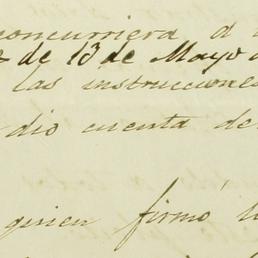 concurriera á
de 13 de Mayo
las instrucciones
dio cuenta de
quien firmó